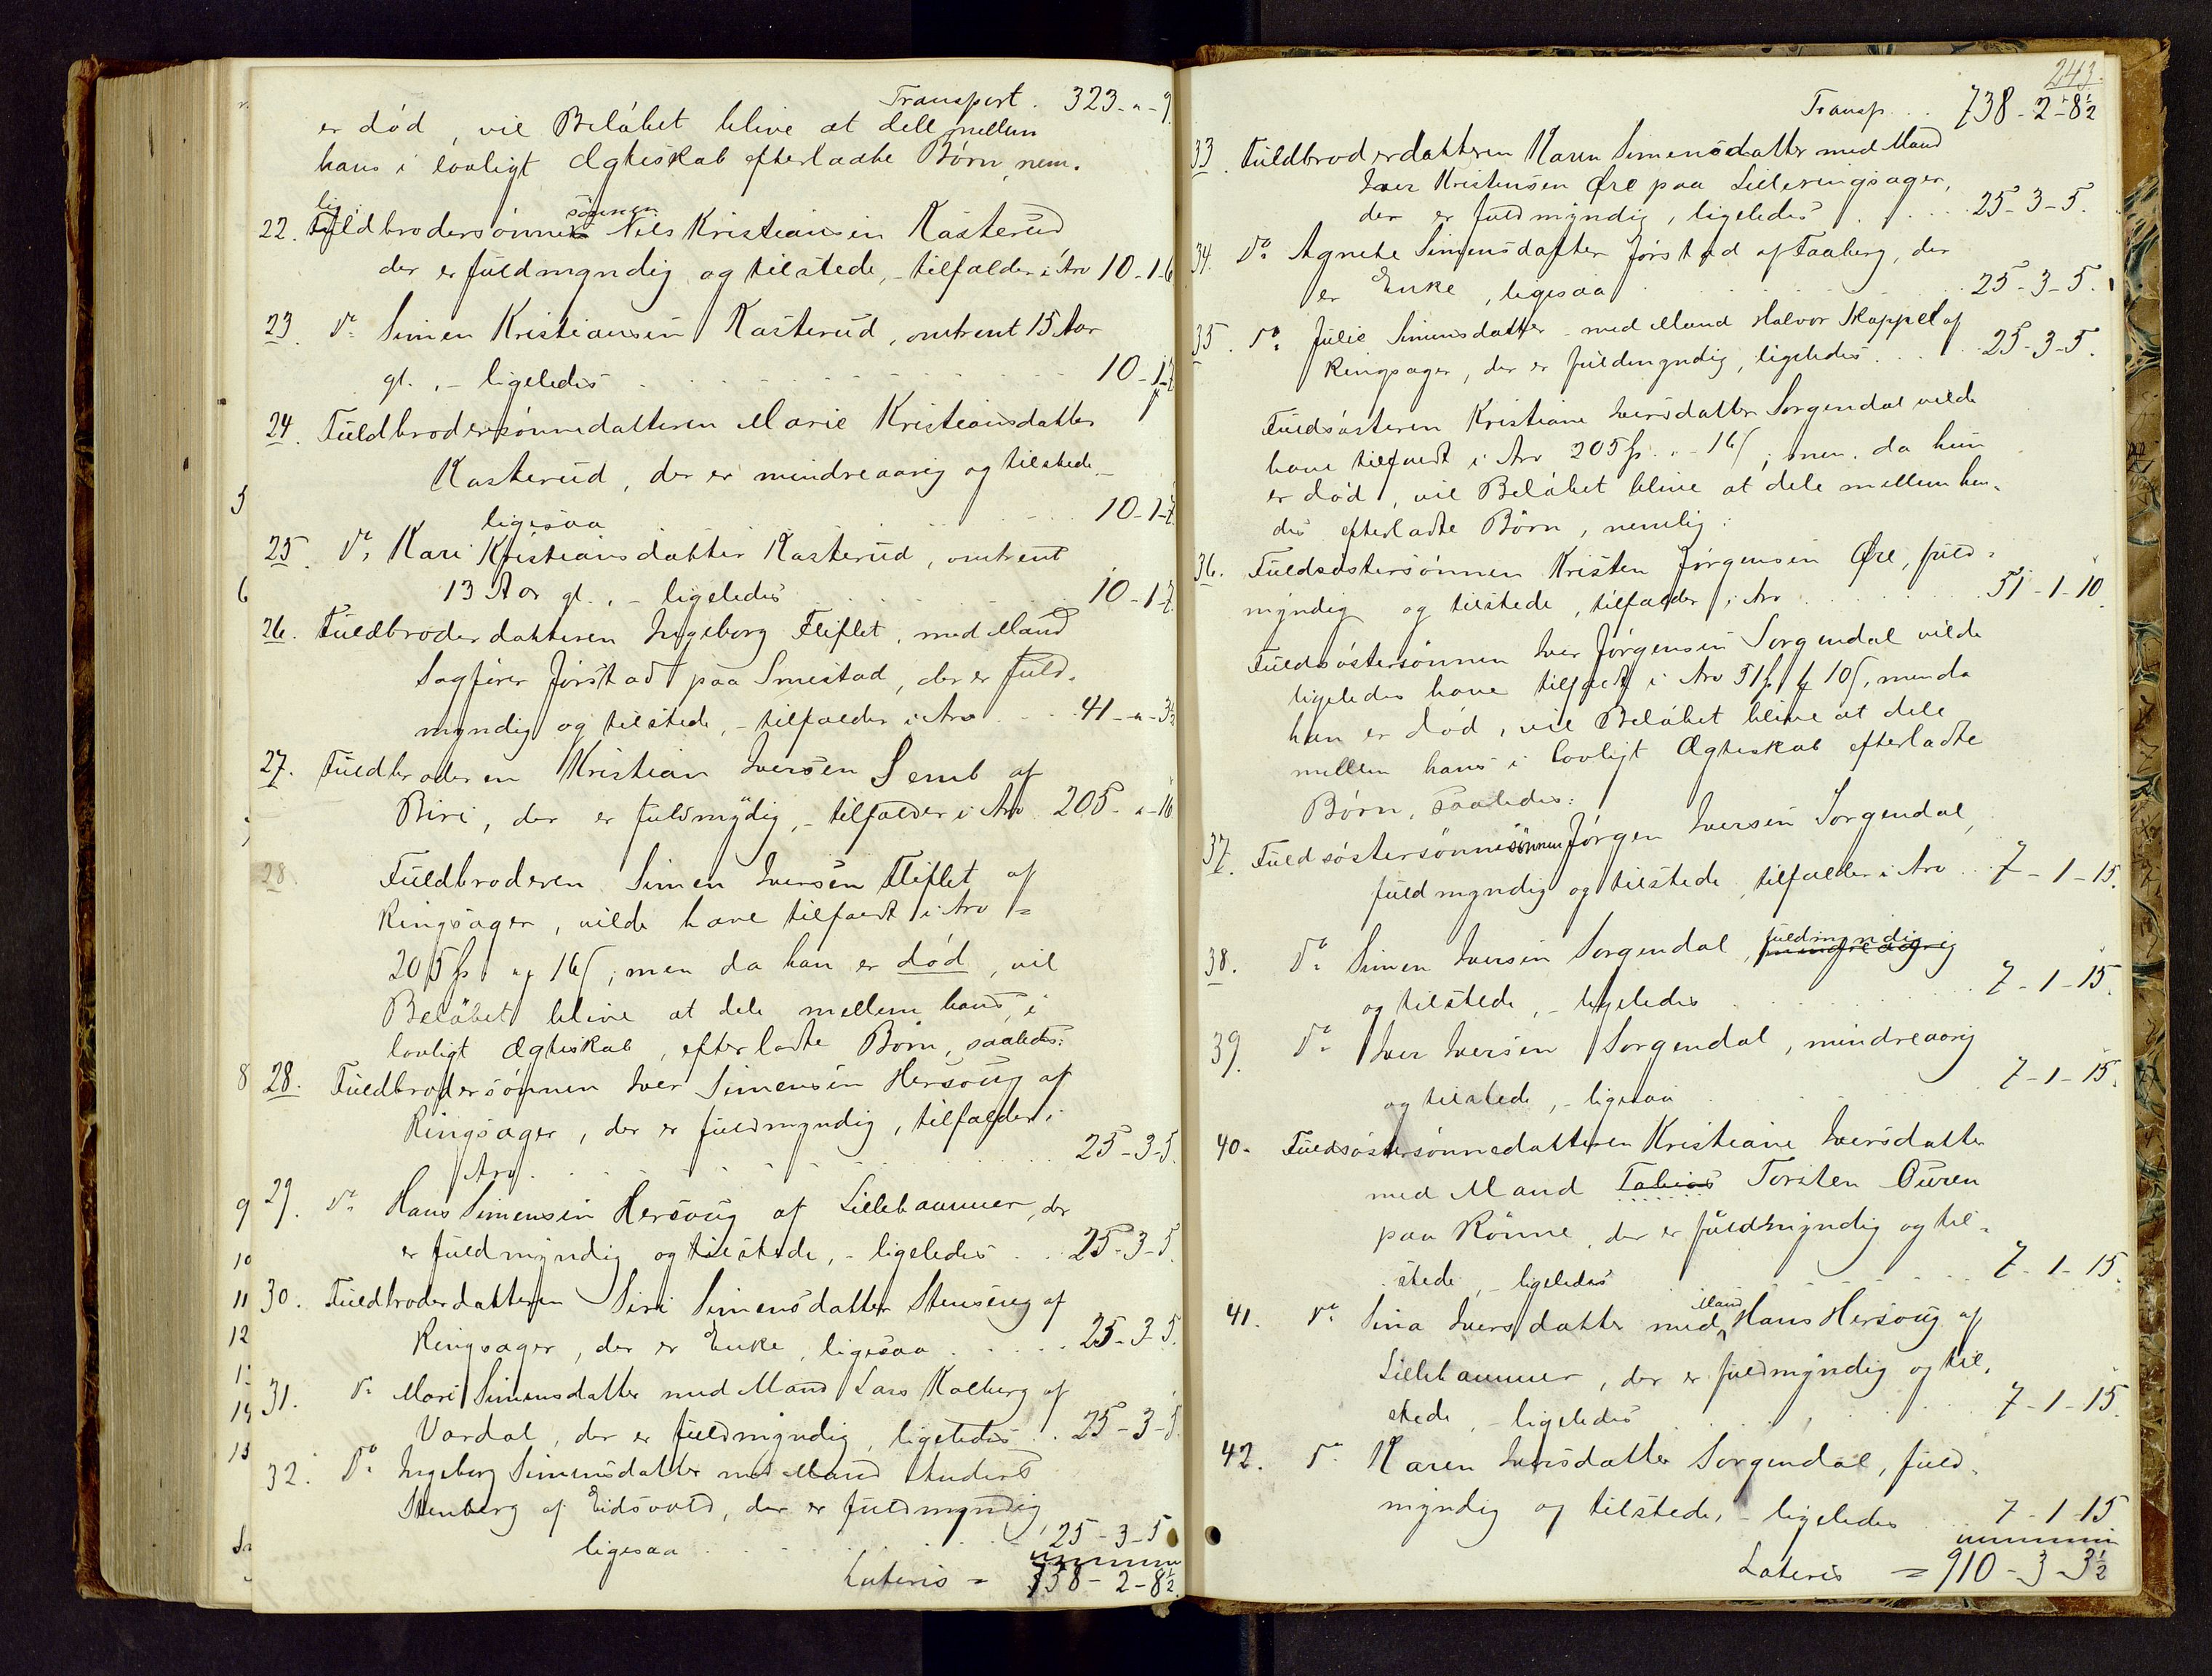 Transport. 323 - " - 9
er död, vil Belöbet blive at dele mellem
hans i lovligt Ægteskab efterladte Börn, nem-
lig:
22. Fuldbrodersönnesönnen Nils Kristiansen Kasterud
der er fuldmyndig og tilstede, - tilfalder i Arv 10-1-6
23. Do Simen Kristiansen Kasterud, omtrent 15 Aar
gl., - ligeledes 10-1-7
24. Fuldbrodersönnedatteren Marie Kristiansdatter
Kasterud, der er mindreaarig og tilstede -
ligesaa 10-1-7
25. Do Kari Kristiansdatter Kasterud, omtrent
13 Aar gl., - ligeledes 10-1-7
26. Fuldbroderdatteren Ingeborg Fliflet, med Mand
Sagfører Jørstad paa Smestad, der er fuld-
myndig og tilstede, - tilfalder i Arv 41-"-3½
27. Fuldbroderen Kristian Iversen Semb af
Biri, der er fuldmydig, - tilfalder i Arv 205-"-16
28. Fuldbroderen Simen Iversen Fliflet af
Ringsager, vilde have tilfaldt i Arv =
205 og 16; men da han er död, vil
Belöbet blive at dele mellem hans, i
lovligt Ægteskab, efterladte Börn, saaledes:
8 28. Fuldbrodersönnen Iver Simensen Hersoug af
Ringsager, der er fuldmyndig, tilfalder i
Arv 25-3-5.
9 29. Do Hans Simensen Hersoug af Lillehammer, der
er fuldmyndig og tilstede, - ligeledes 25-3-5.
10
11 30. Fuldbroderdatteren Siri Simensdatter Stenseng af
12 Ringsager, der er Enke, ligesaa 25-3-5.
31. Do Mari Simensdatter med Mand Lars Kalberg af
Vardal, der er fuldmyndig, ligeledes 25-3-5.
32. Do Ingeborg Simensdatter med Mand Anders
Stenberg af Eidsvold, der er fuldmyndig,
ligesaa 25-3-5
Lateris = 738-2-8½.
243.
Transp. 738-2-8½
33. Fuldbroderdatteren Karen Simensdatter med Mand
Iver Kristensen Øre paa Lilleringsager,
der er fuldmyndig, ligeledes 25-3-5.
34. Do Agnete Simensdatter Jørstad af Faaberg, der
er Enke, ligesaa 25-3-5.
35. Do Julie Simensdatter - med Mand Halvor Skappel af
Ringsager, der er fuldmyndig, ligeledes 25-3-5.
Fuldsösteren Kristiane Iversdatter Sorgendal vilde
have tilfaldt i Arv 205 " - 16; men da hun
er död, vil Belöbet blive at dele mellem hen-
des efterladte Börn, nemlig:
36. Fuldsöstersönnen Kristen Jörgensen Øre, fuld-
myndig og tilstede, tilfalder i Arv 51-1-10.
Fuldsöstersönnen Iver Jörgensen Sorgendal vilde
ligeledes have tilfaldt i Arv 51 1 10, men da
han er död, vil Belöbet blive at dele
mellem hans i lovligt Ægteskab efterladte
Börn, saaledes:
37. Fuldsöstersönnesönnen Jörgen Iversen Sorgendal,
fuldmyndig og tilstede, tilfalder i Arv 7-1-15.
38. Do Simen Iversen Sorgendal, mindreaarig fuldmyndig
og tilstede, - ligeledes 7-1-15.
39. Do Iver Iversen Sorgendal, mindreaarig
og tilstede, - ligesaa 7-1-15.
40. Fuldsöstersönnedatteren Kristiane Iversdatter
med Mand Tobias Torsten Ouren
paa Rönne, der er fuldmyndig og til-
stede, - ligeledes 7-1-15.
41. Do Sina Iversdatter med Mand Hans Hersoug af
Lillehammer, der er fuldmyndig og til-
stede, - ligeledes 7-1-15.
42. Do Karen Iversdatter Sorgendal, fuld-
myndig og tilstede, - ligeledes 7-1-15
Lateris = 910-3-3½